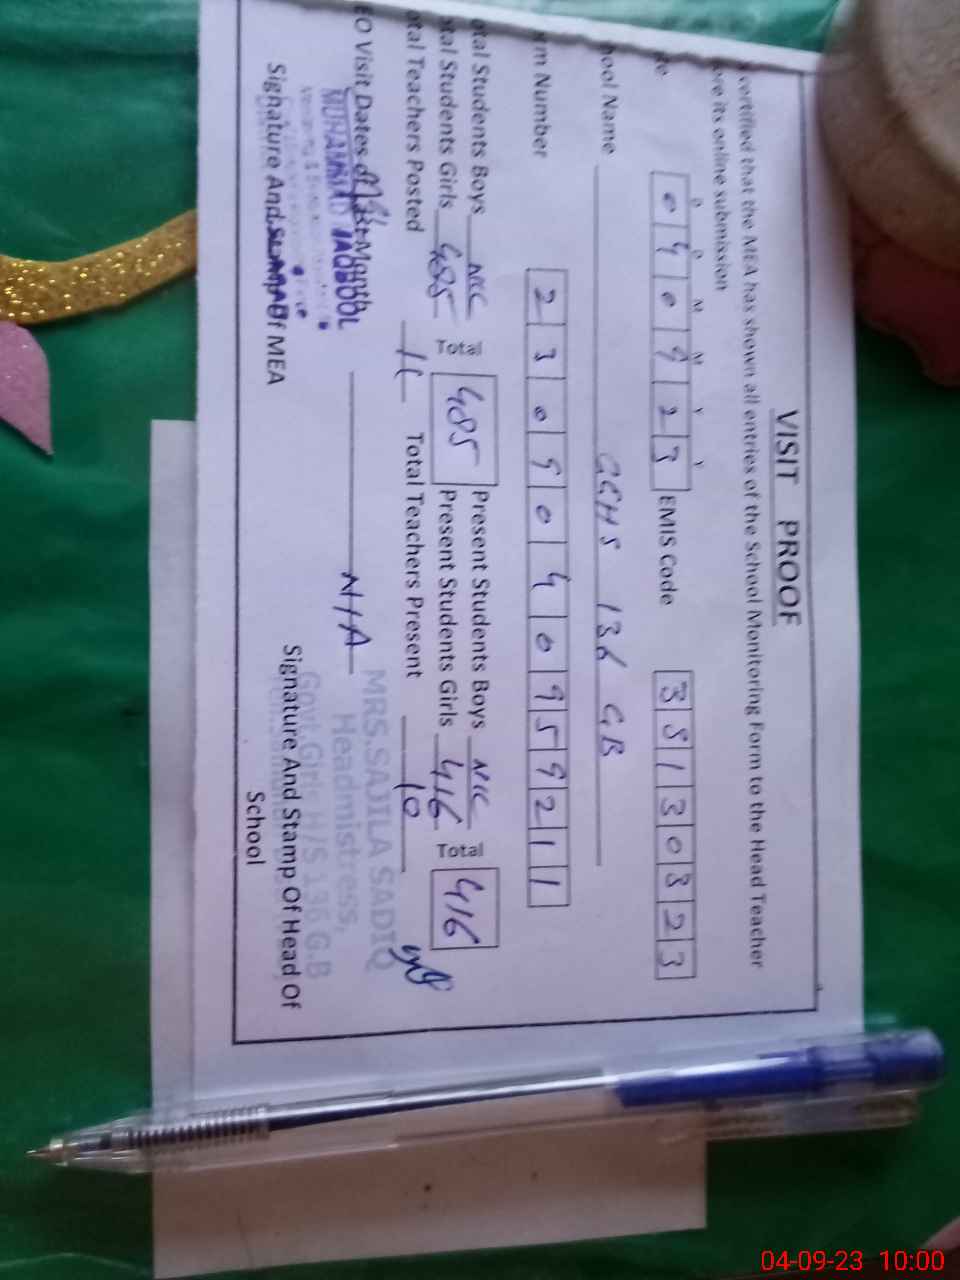 VISIT PROOF
certified that the MEA has shown all entries of the School Monitoring Form to the Head Teacher
its online submission
D D M M Y Y
0 4 0 9 2 3 EMIS Code 3 3 1 3 0 3 2 3
School Name GGHS 136 GB
Number 2 3 0 9 0 4 0 9 5 9 2 1 1
Total Students Boys NIL Present Students Boys NIL
Total Students Girls 485 Total 485 Present Students Girls 416 Total 416
Total Teachers Posted 16 Total Teachers Present 10
Visit Dates of Last Month N/A
MUHAMMAD MAQBOOL
MRS.SAJILA SADIQ
Headmistress,
Govt.Girls H/S 136 G.B
Signature And Stamp Of MEA
Signature And Stamp Of Head Of
School
04-09-23 10:00